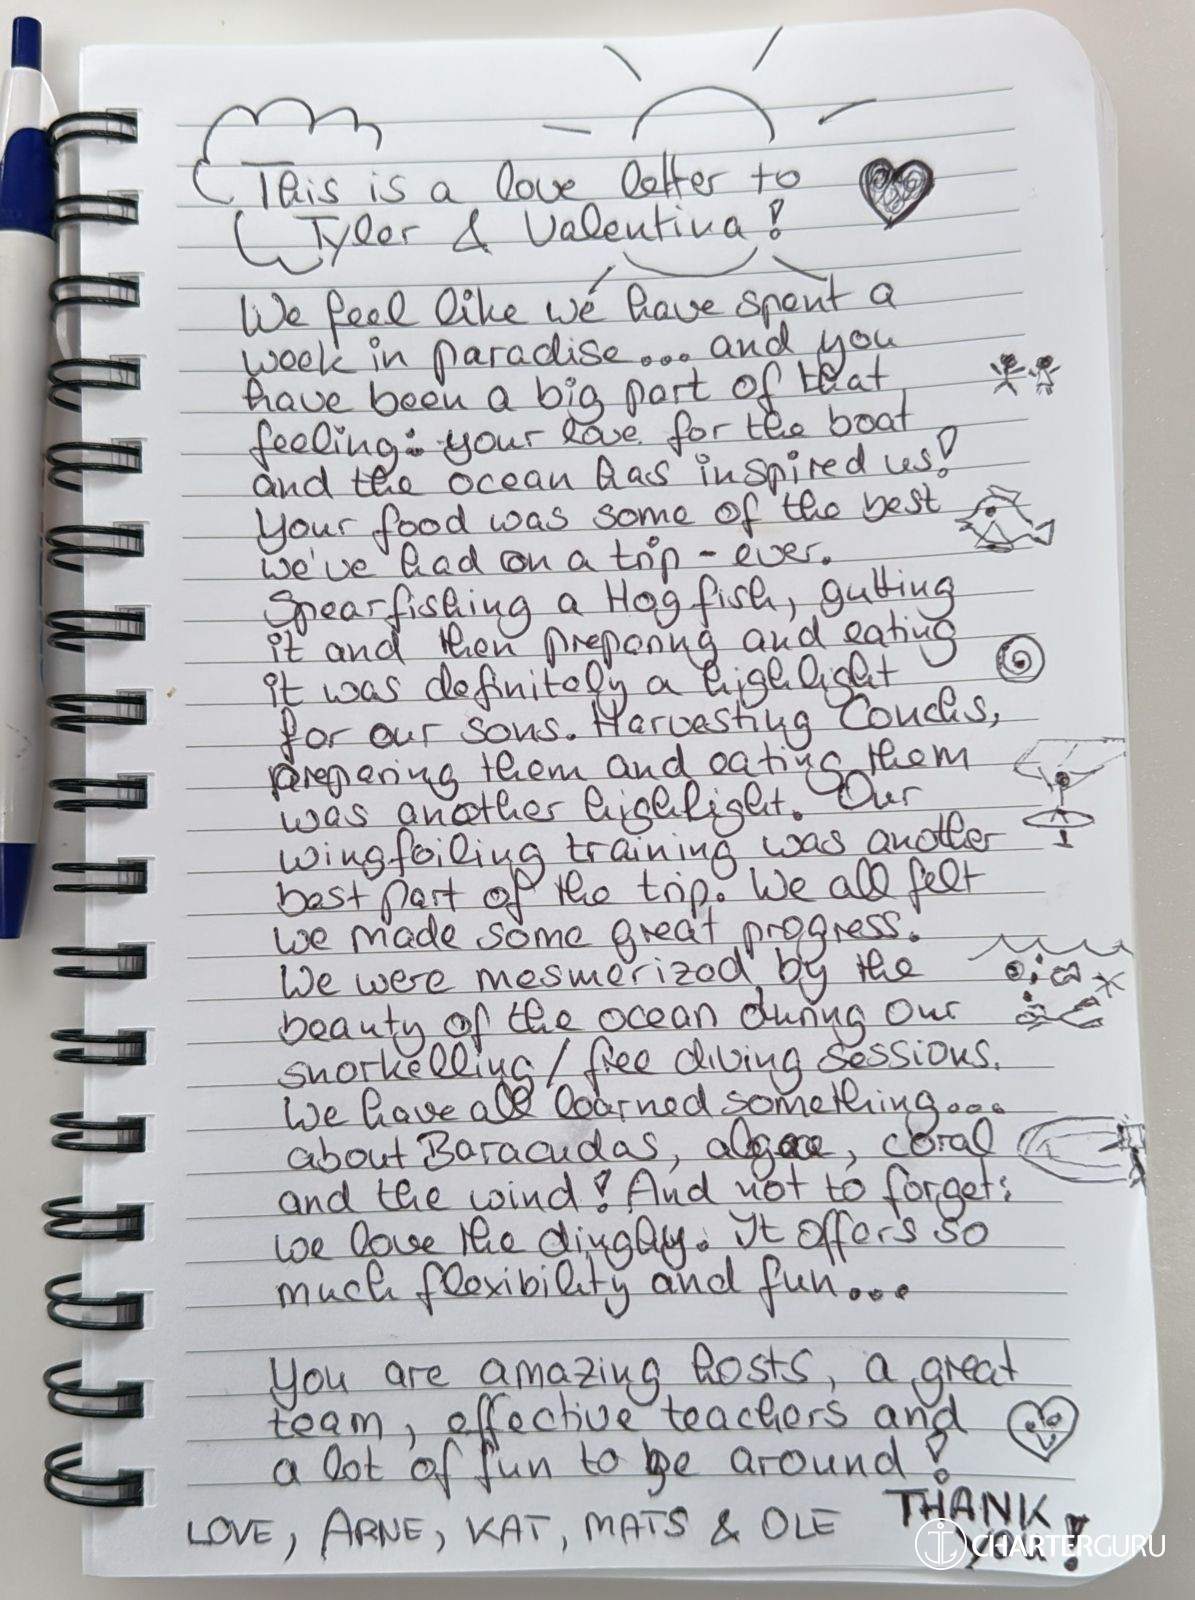 This is a love letter to
Tyler & Valentina!
We feel like we have spent a
week in paradise... and you
have been a big part of that
feeling: your love for the boat
and the ocean has inspired us!
Your food was some of the best
we've had on a trip - ever.
Spearfishing a Hogfish, gutting
it and then preparing and eating
it was definitely a highlight
for our sons. Harvesting Conchs,
preparing them and eating them
was another highlight. Our
wingfoiling training was another
best part of the trip. We all felt
we made some great progress.
We were mesmerized by the
beauty of the ocean during our
snorkelling / free diving sessions.
We have all learned something...
about Baracudas, algae, coral
and the wind! And not to forget:
we love the dinghy. It offers so
much flexibility and fun...
You are amazing hosts, a great
team, effective teachers and
a lot of fun to be around!
LOVE, ARNE, KAT, MATS & OLE
THANK
you!
CHARTERGURU